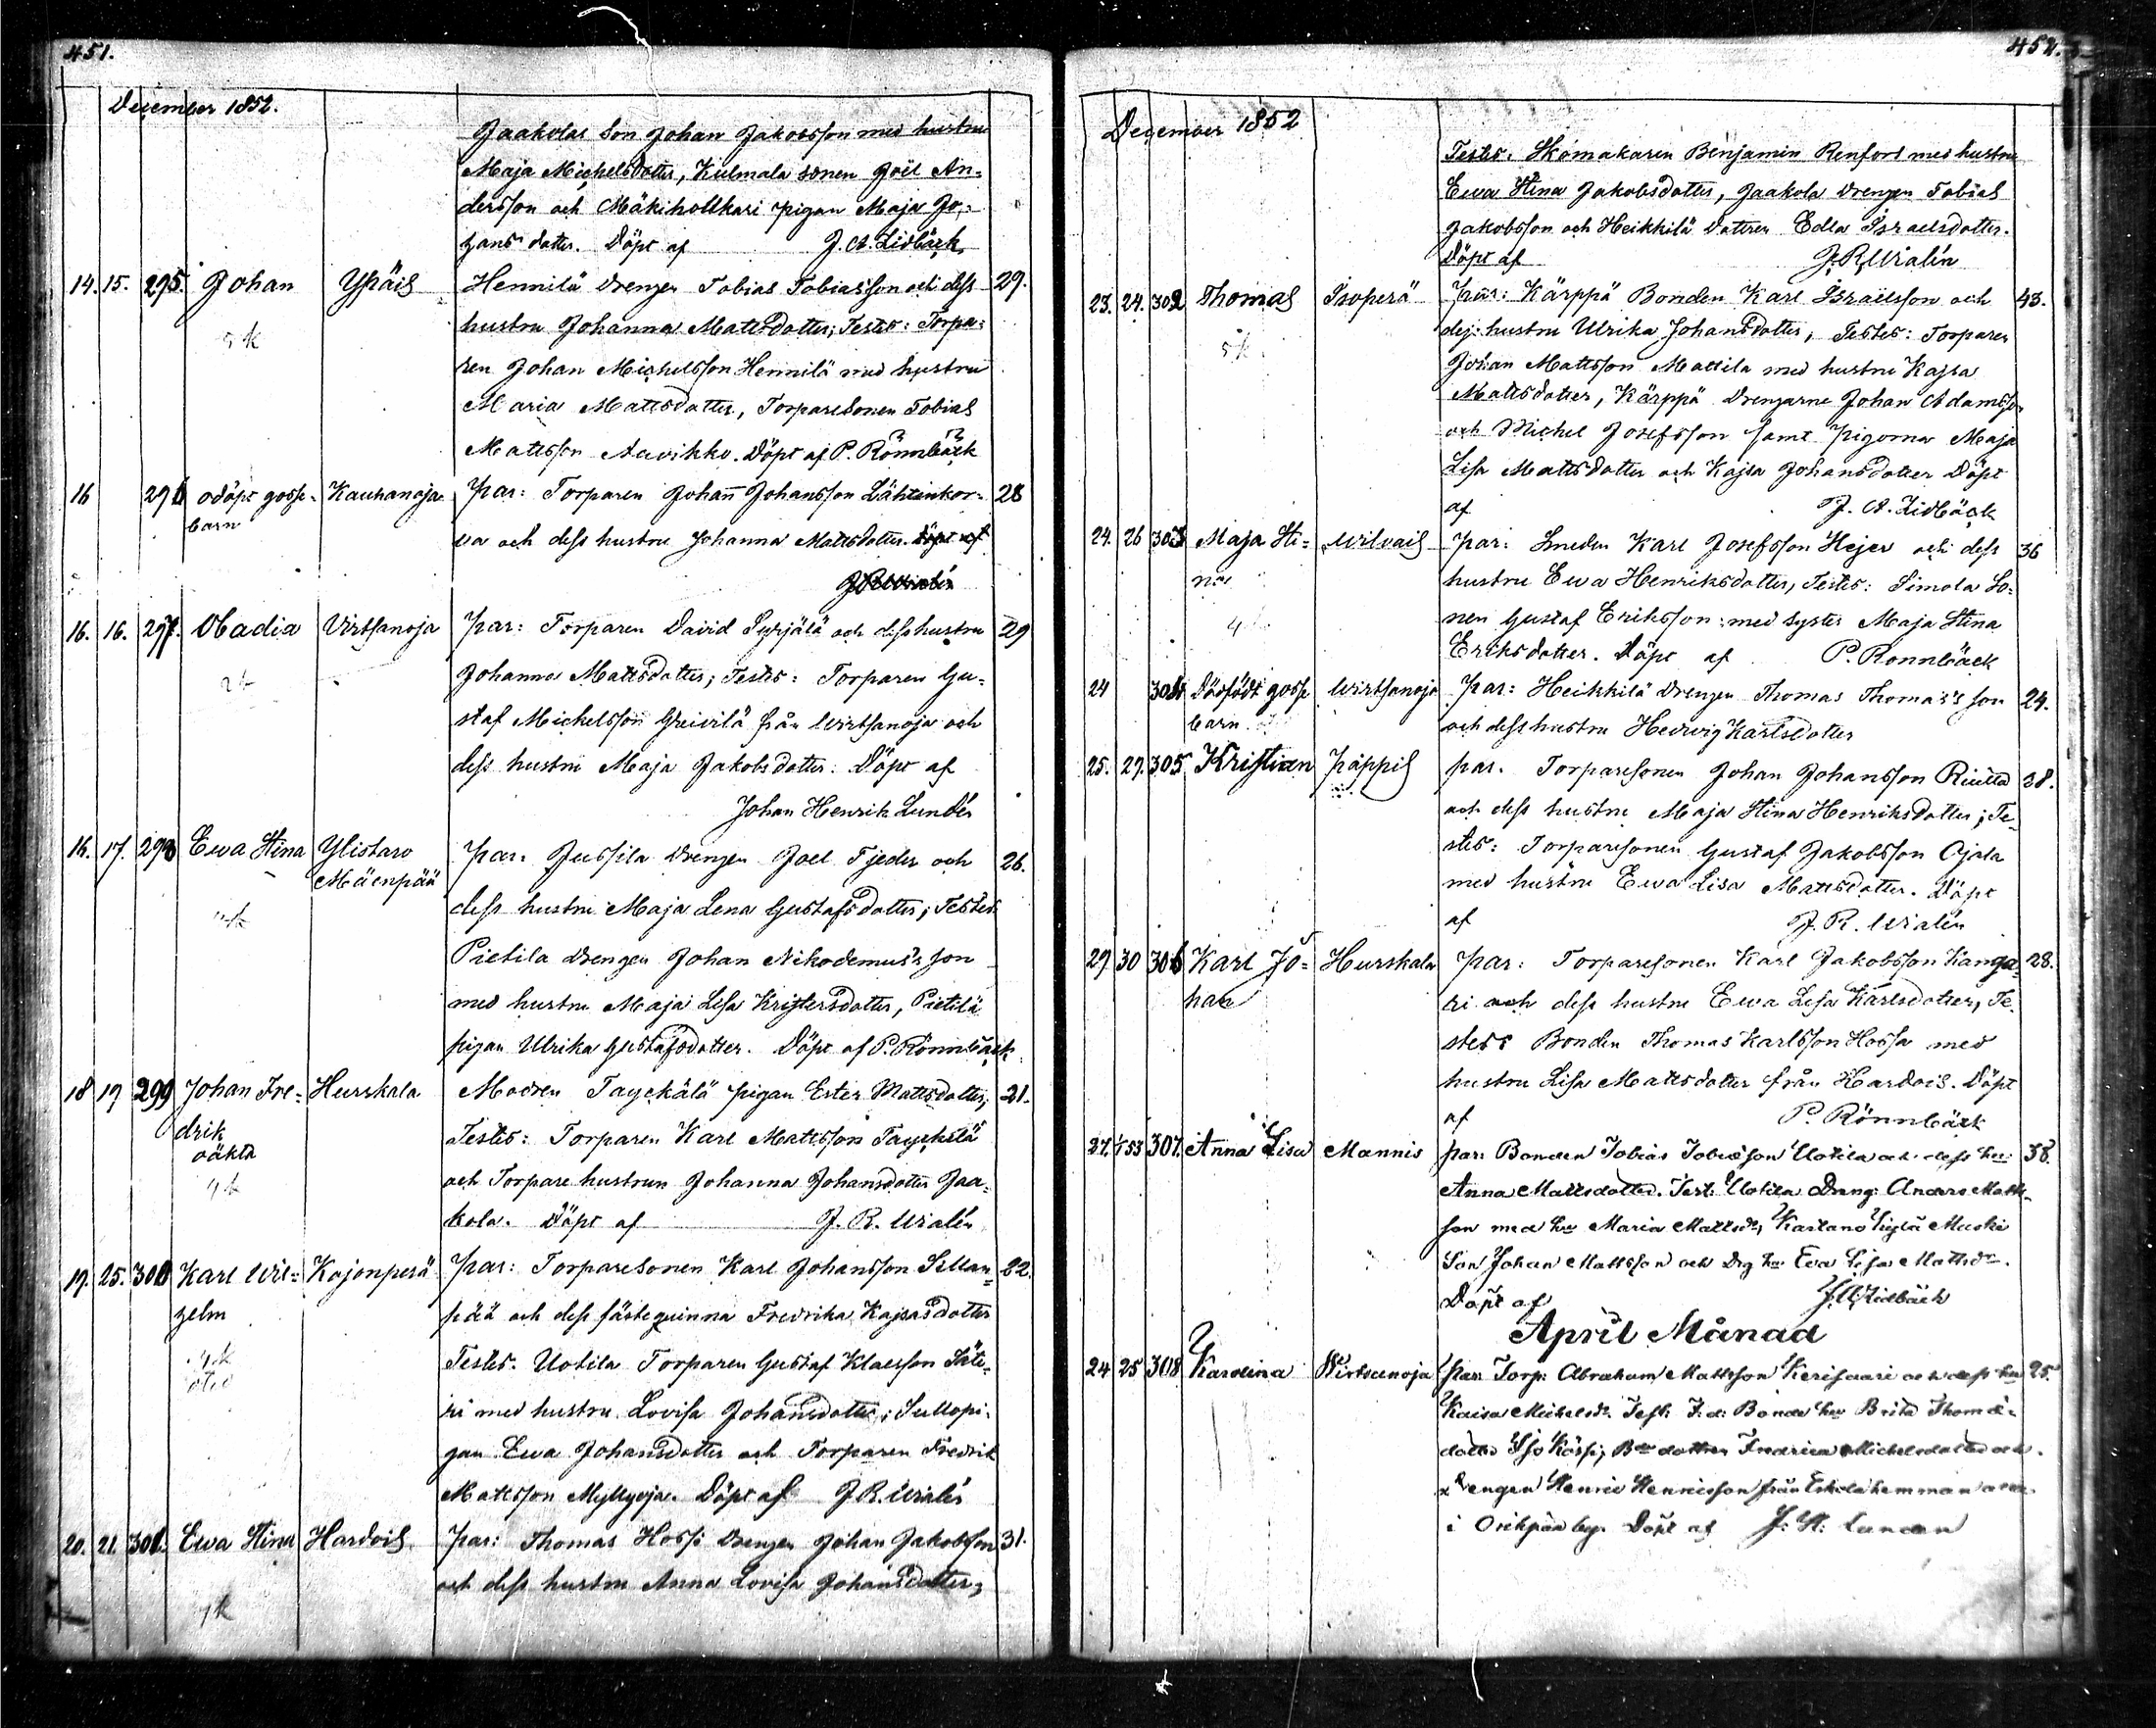 451.
December 1852.
Jaakolas son Johan Jakobsson med hustru
Maja Michelsdotter, Kulmala sonen Joël An-
dersson och Mäkihollkari pigan Maja Jo-
hansdotter. Döpt af J. A. Lidbäck
14. 15. 295. Johan Ypäis Hennilä drengen Tobias Tobiasson och dess 29.
5 k
hustru Johanna Mattsdotter; Testes: Torpa-
ren Johan Michelsson Hennilä med hustru
Maria Mattsdotter, Torparesonen Tobias
Mattsson Aavikko. Döpt af P. Rönnbäck
16 296 odöpt gosse- Kauhanoja par: Torparen Johan Johansson Lähteinkor- 28
barn
va och dess hustru Johanna Mattsdotter. Döpt af
J R Wialén
16. 16. 297. Obadia Virtsanoja par: Torparen David Syrjälä och dess hustru 29
Johanna Mattsdotter; Testes: Torparen Gu-
staf Michelsson Greivilä från Wirtsanoja och
dess hustru Maja Jakobsdotter. Döpt af
Johan Henrik Lundén
16. 17. 298 Ewa Stina Ylistaro par: Jussila drengen Joel Tjeder och 26.
Mäenpää
dess hustru Maja Lena Gustafsdotter; Testes
Pietila drengen Johan Nikodemus's son
med hustru Maja Lisa Kristersdotter, Pietilä
pigan Ulrika Gustafsdotter. Döpt af P. Rönnbäck
18 19 299 Johan Fre- Hurskala Modren Tayckälä pigan Ester Mattsdotter; 21.
drik
oäkta
4 k
Testes: Torparen Karl Mattsson Tayckälä
och Torpare hustrun Johanna Johansdotter Jaa-
kola. Döpt af J. R. Wialén
19. 25. 300 Karl Wil- Kojonperä par: Torparesonen Karl Johansson Sillan- 22.
helm
pää och dess fästeqvinna Fredrika Kajsasdotter
Testes. Uotila Torparen Gustaf Klaesson Säte-
ri med hustru Lovisa Johansdotter; Sullopi-
gan Ewa Johansdotter och Torparen Fredrik
Mattsson Myllyoja. Döpt af J R. Wialén
20. 21. 301. Ewa Stina Hardois par: Thomas Hossi drengen Johan Jakobsson 31.
och dess hustru Anna Lovisa Johansdotter;
452.
December 1852
Testes. Skomakaren Benjamin Renfors med hustru
Ewa Stina Jakobsdotter, Jaakola drengen Tobias
Jakobsson och Heikkilä dottren Edla Israelsdotter.
Döpt af J. R. Wialén
23. 24. 302 Thomas Isoperä par: Kärppä Bonden Karl Israelsson och 43.
5 k
dess hustru Ulrika Johansdotter, Testes: Torparen
Johan Mattsson Mattila med hustru Kajsa
Mattsdotter, Kärppä drengarne Johan Adamsson
och Michel Josefsson samt pigorna Maja
Lisa Mattsdotter och Kajsa Johansdotter Döpt
af J. A. Lidbäck
24. 26 303 Maja Sti- Wilvais par: Smeden Karl Josefsson Hejer och dess 36
na
hustru Ewa Henriksdotter, Testes: Simola So-
nen Gustaf Eriksson med syster Maja Stina
Eriksdotter. Döpt af P. Rönnbäck
24 304 Dödfödt gosse Wirtsanoja par: Heikkilä drengen Thomas Thomas's son 24.
barn
och dess hustru Hedwig Karlsdotter
25. 27. 305 Kristian Päppis par. Torparesonen Johan Johansson Riutta 38.
och dess hustru Maja Stina Henriksdotter; Te-
stes: Torparesonen Gustaf Jakobsson Ojala
med hustru Ewa Lisa Mattsdotter. Döpt
af J. R. Wialén
29 30 306 Karl Jo- Hurskala par: Torparesonen Karl Jakobsson Kanga- 28.
han
ri och dess hustru Ewa Lisa Karlsdotter, Te-
stes: Bonden Thomas Karlsson Hossa med
hustru Lisa Mattsdotter från Hardois. Döpt
af P. Rönnbäck
27. 1/1 53 307. Anna Lisa Mannis par: Bonden Tobias Tobiasson Uotila och dess hu 38.
Anna Mattsdotter. Test: Uotila Dreng Anders Matts-
son med hu Maria Mattsdr,
Son Johan Mattsson och Drg hu Eva Lisa Mattsdr.
Döpt af J A Lidbäck
April Månad
24 25 308 Karolina Wirtsanoja par: Torp: Abraham Mattsson Kerisaari och dess hu 25.
Kaisa Michelsdr. Test: Bonde hu Brita Thomæ-
dotter dottren Fredrica Michelsdotter och
drengen Henric Henricsson från hemman
i Orihpää by. Döpt af J. H. Lunden